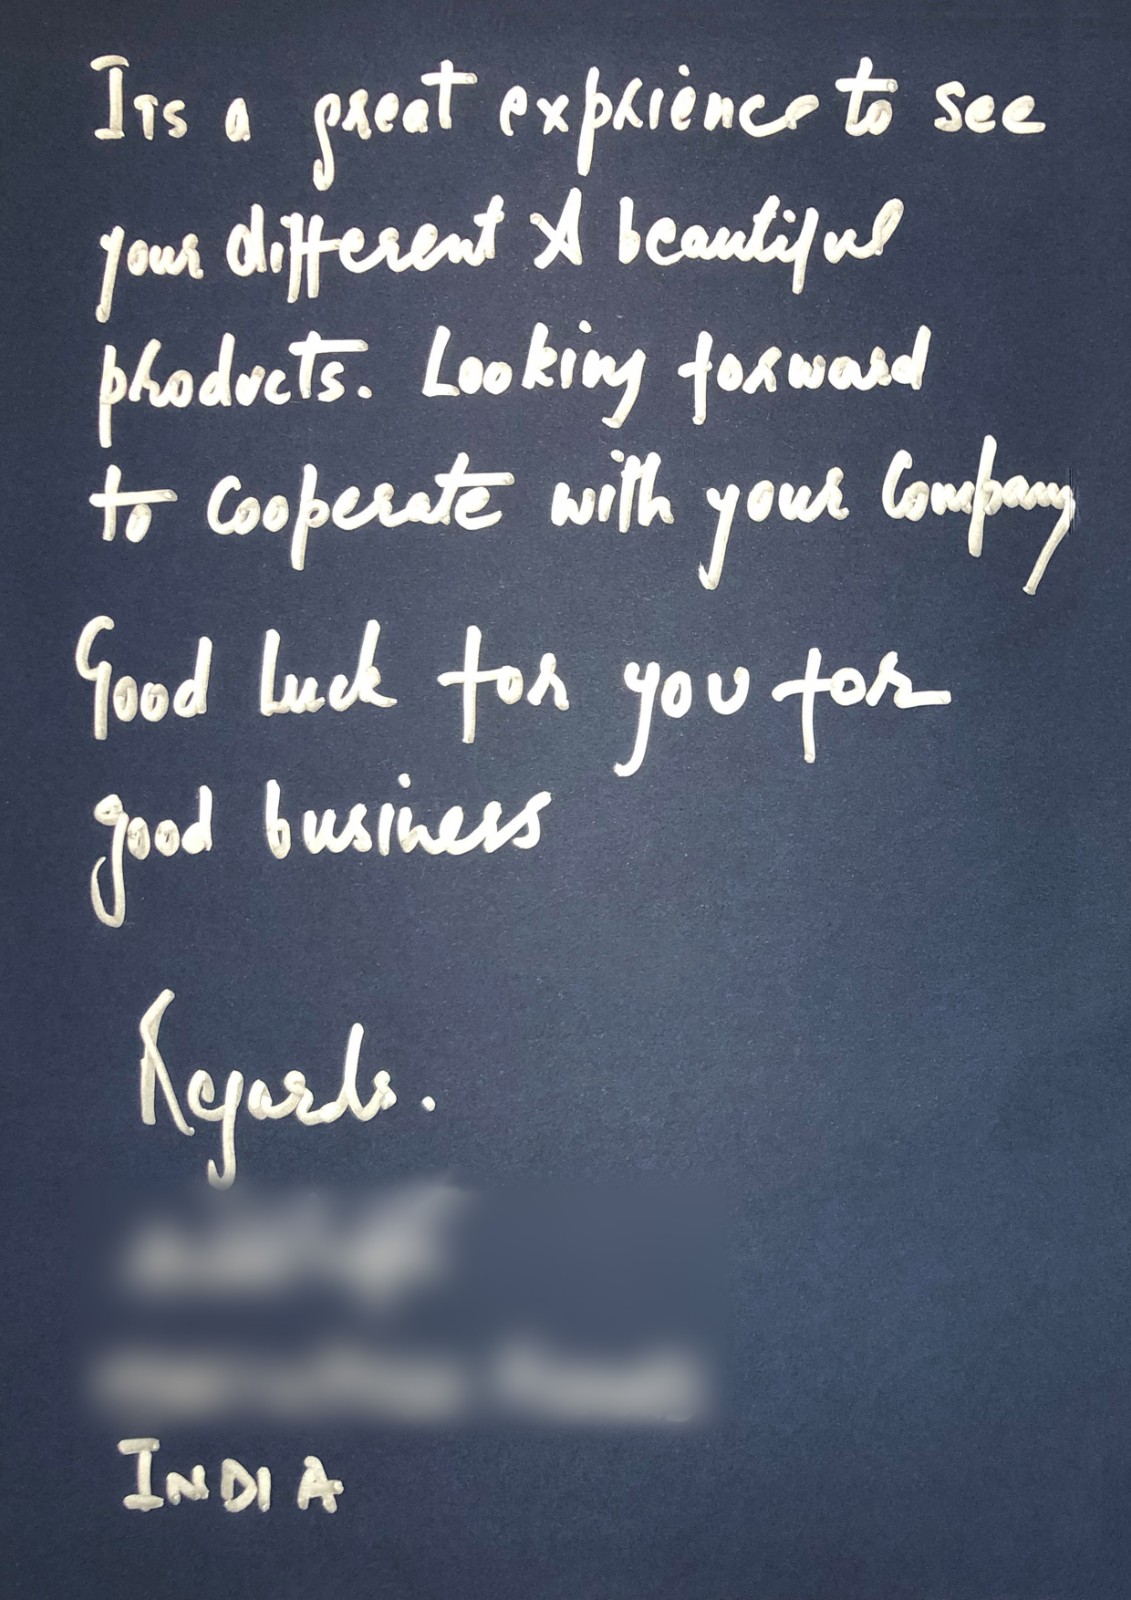 Its a great exprience to see
your different & beautiful
products. Looking forward
to cooperate with your Company
Good luck for you for
good business
Regards.
INDIA